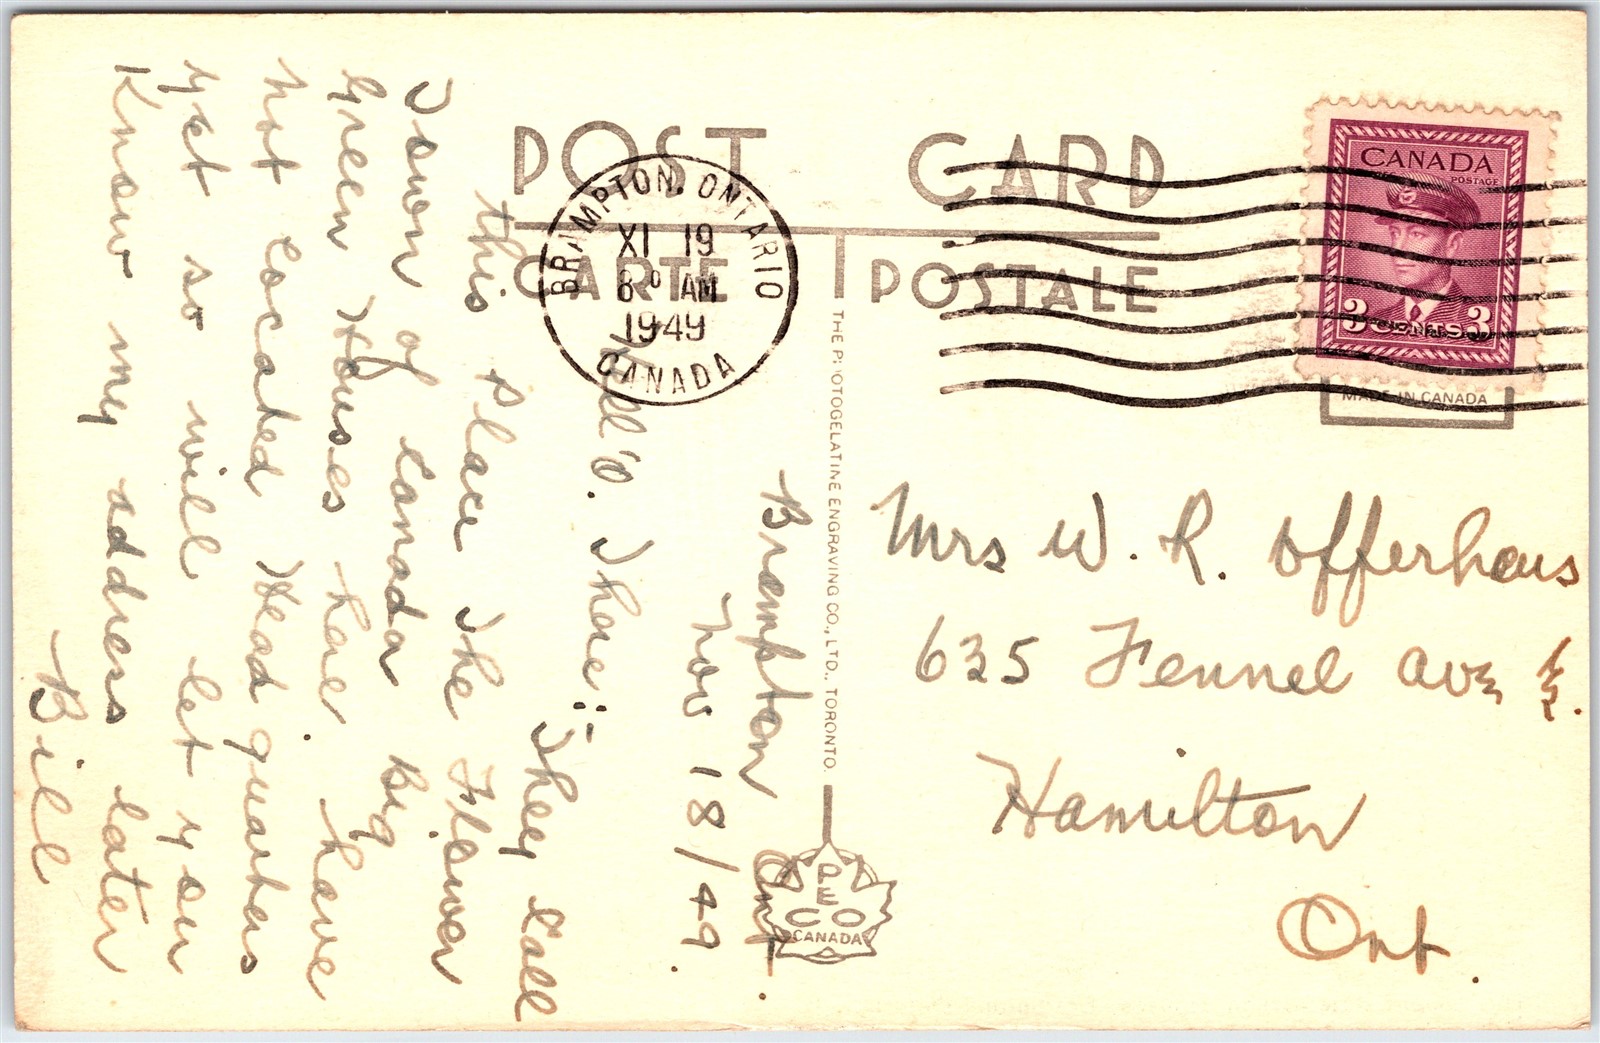 POST CARD
CARTE POSTALE
BRAMPTON, ONTARIO
XI 19
8⁰ AM
1949
CANADA
CANADA
POSTAGE
3 CENTS 3
MADE IN CANADA
THE PHOTOGELATINE ENGRAVING CO., LTD., TORONTO.
PECO
CANADA
Brampton Ont.
Nov 18/49.
Hell'o. There :-
They Call
this Place The Flower
Town of Canada Big
Green Houses here. have
not Located Head quarters
yet so will let you
Know my address later
Bill
Mrs W. R. Offerhaus
635 Fennel Ave E.
Hamilton
Ont.